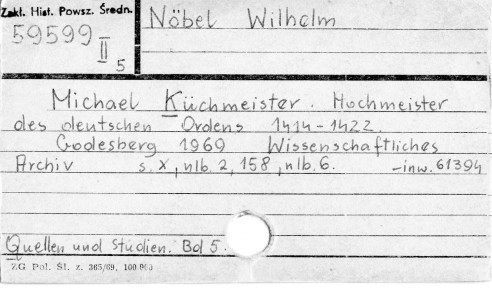 Zakł. Hist. Powsz. Średn.
59599 II 5
Nöbel Wilhelm
Michael Küchmeister. Hochmeister
des deutschen Ordens 1414-1422.
Godesberg 1969 Wissenschaftliches
Archiv s. X, nlb. 2, 158, nlb. 6. -inw. 61394
Quellen und Studien. Bd 5.
ZG Pol. Śl. z. 365/69, 100 000